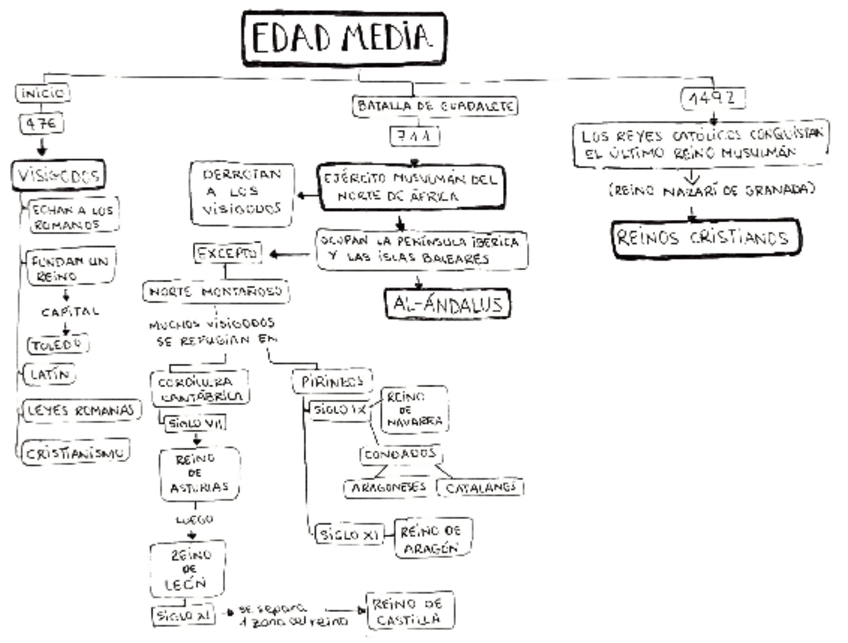 EDAD MEDIA
INICIO
476
VISIGODOS
ECHAN A LOS
ROMANOS
FUNDAN UN
REINO
CAPITAL
TOLEDO
LATÍN
LEYES ROMANAS
CRISTIANISMO
BATALLA DE GUADALETE
711
EJÉRCITO MUSULMÁN DEL
NORTE DE ÁFRICA
DERROTAN
A LOS
VISIGODOS
OCUPAN LA PENÍNSULA IBÉRICA
Y LAS ISLAS BALEARES
AL-ÁNDALUS
EXCEPTO
NORTE MONTAÑOSO
MUCHOS VISIGODOS
SE REFUGIAN EN
CORDILLERA
CANTÁBRICA
SIGLO VII
REINO
DE
ASTURIAS
LUEGO
REINO
DE
LEÓN
SIGLO XI
se separa
1 zona del reino
REINO DE
CASTILLA
PIRINEOS
SIGLO IX
REINO
DE
NAVARRA
CONDADOS
ARAGONESES
CATALANES
SIGLO XI
REINO DE
ARAGÓN
1492
LOS REYES CATÓLICOS CONQUISTAN
EL ÚLTIMO REINO MUSULMÁN
(REINO NAZARÍ DE GRANADA)
REINOS CRISTIANOS